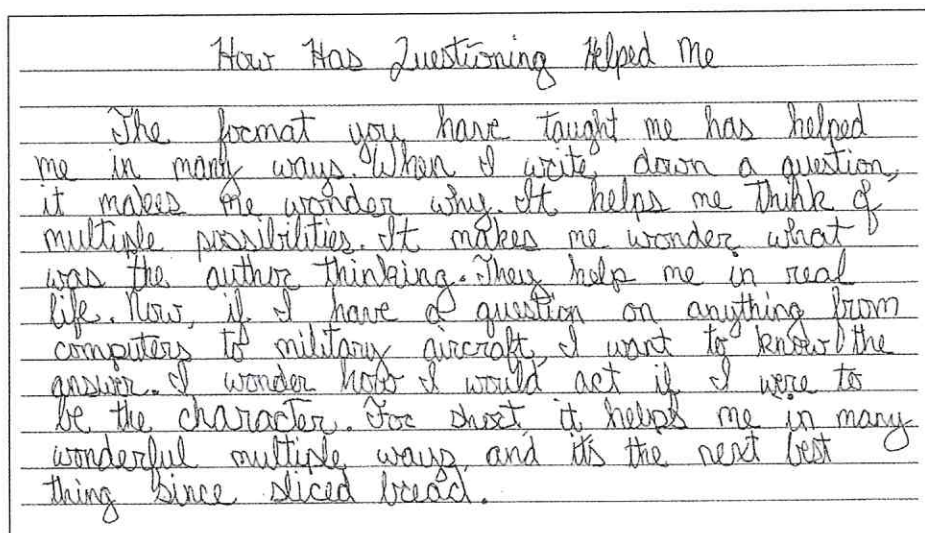 How Has Questioning Helped Me
The format you have taught me has helped
me in many ways. When I write down a question,
it makes me wonder why. It helps me think of
multiple possibilities. It makes me wonder what
was the author thinking. They help me in real
life. Now, if I have a question on anything from
computers to military aircraft, I want to know the
answer. I wonder how I would act if I were to
be the character. For short, it helps me in many
wonderful multiple ways, and it's the next best
thing since sliced bread.